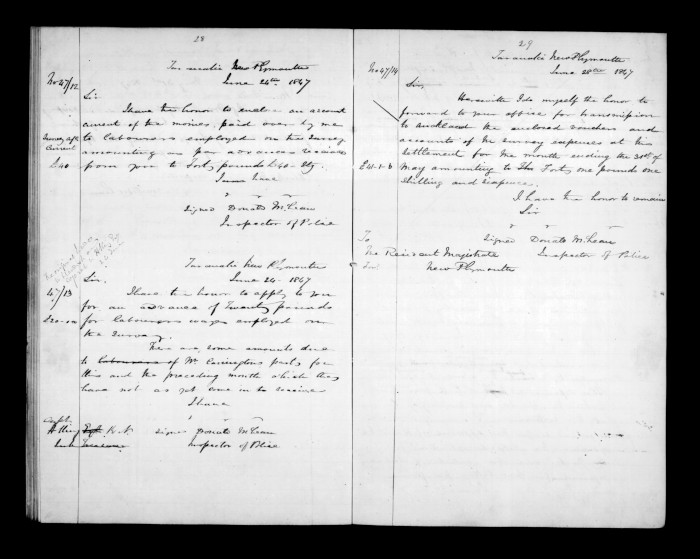 28
Taranaki New Plymouth
June 24th 1847
No 47/12
Sir
I have the honor to enclose an account
current of the monies paid over by me
Survey a/c to labourers employed on the survey
Current
amounting as per advances received
£40 from you to Forty pounds £40 Stg.
I have
Signed Donald McLean
Inspector of Police
Taranaki New Plymouth
June 24 1847
47/13
Sir.
I have the honor to apply to you
for an advance of Twenty pounds
£20-0-0 for labourers wages employed on
the survey.
There are some amounts due
to labourers of Mr Carringtons party for
this and the preceding month which they
have not as yet come in to receive
I have
Capt.
R.N. Signed Donald McLean
Sub Inspector of Police
29
Taranaki New Plymouth
June 28th 1847
No 47/14
Sir,
Herewith I do myself the honor to
forward to your office for transmission
to Auckland the enclosed vouchers and
accounts of the survey expenses at this
settlement for the month ending the 31st of
£41-1-6 May amounting to the Forty one pounds one
shilling and sixpence.
I have the honor to remain
Sir
Signed Donald McLean
Inspector of Police
To
The Resident Magistrate
New Plymouth